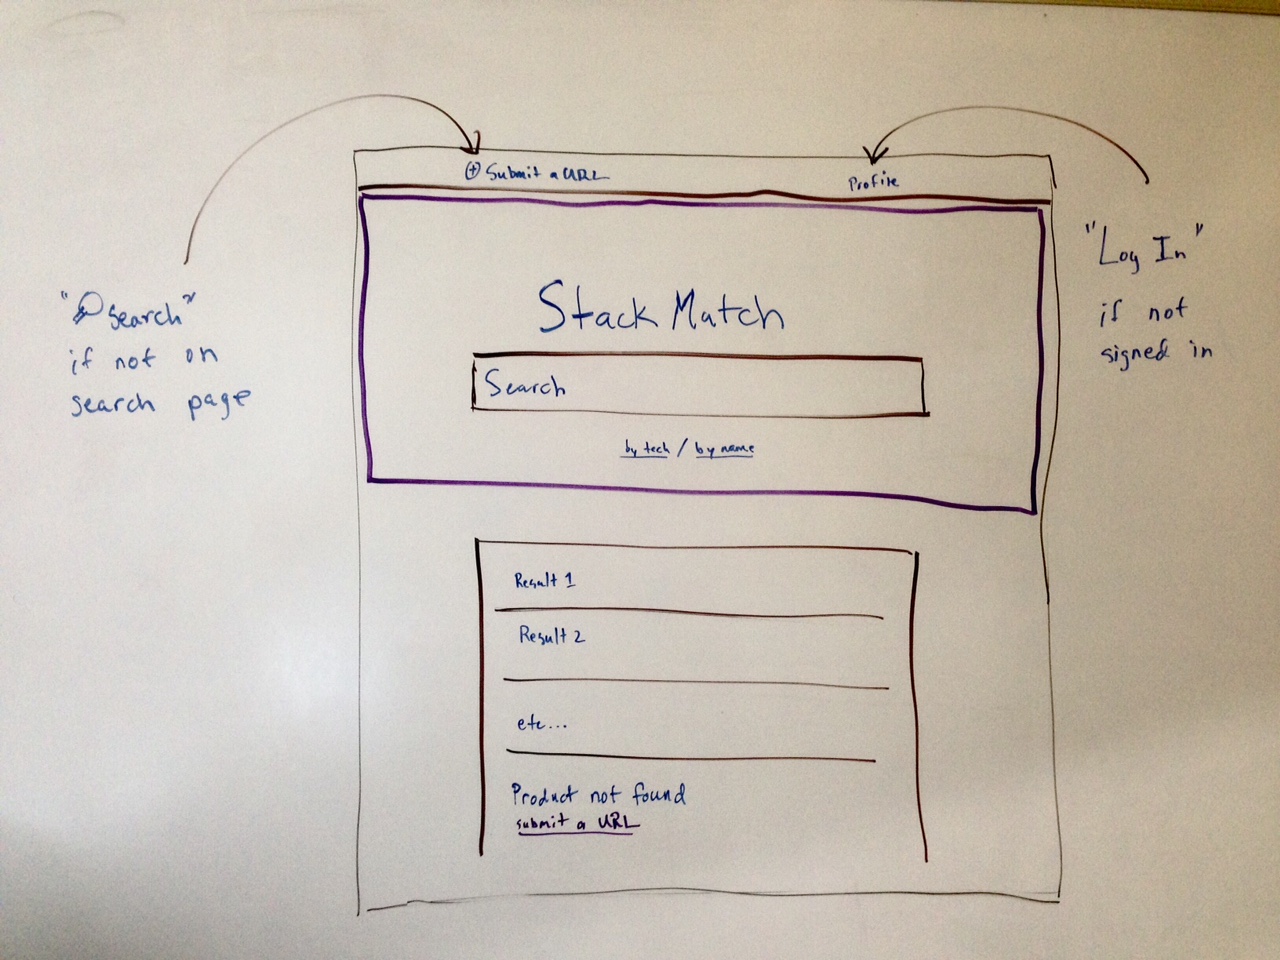 ⊕ Submit a URL
Profile
"Search"
if not on
search page
"Log In"
if not
signed in
Stack Match
Search
by tech / by name
Result 1
Result 2
etc...
Product not found
submit a URL